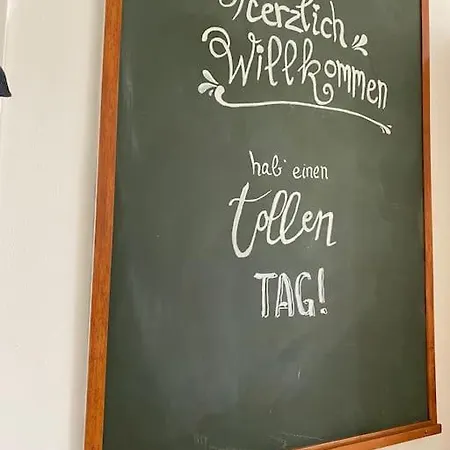 Herzlich
Willkommen
hab' einen
tollen
TAG!